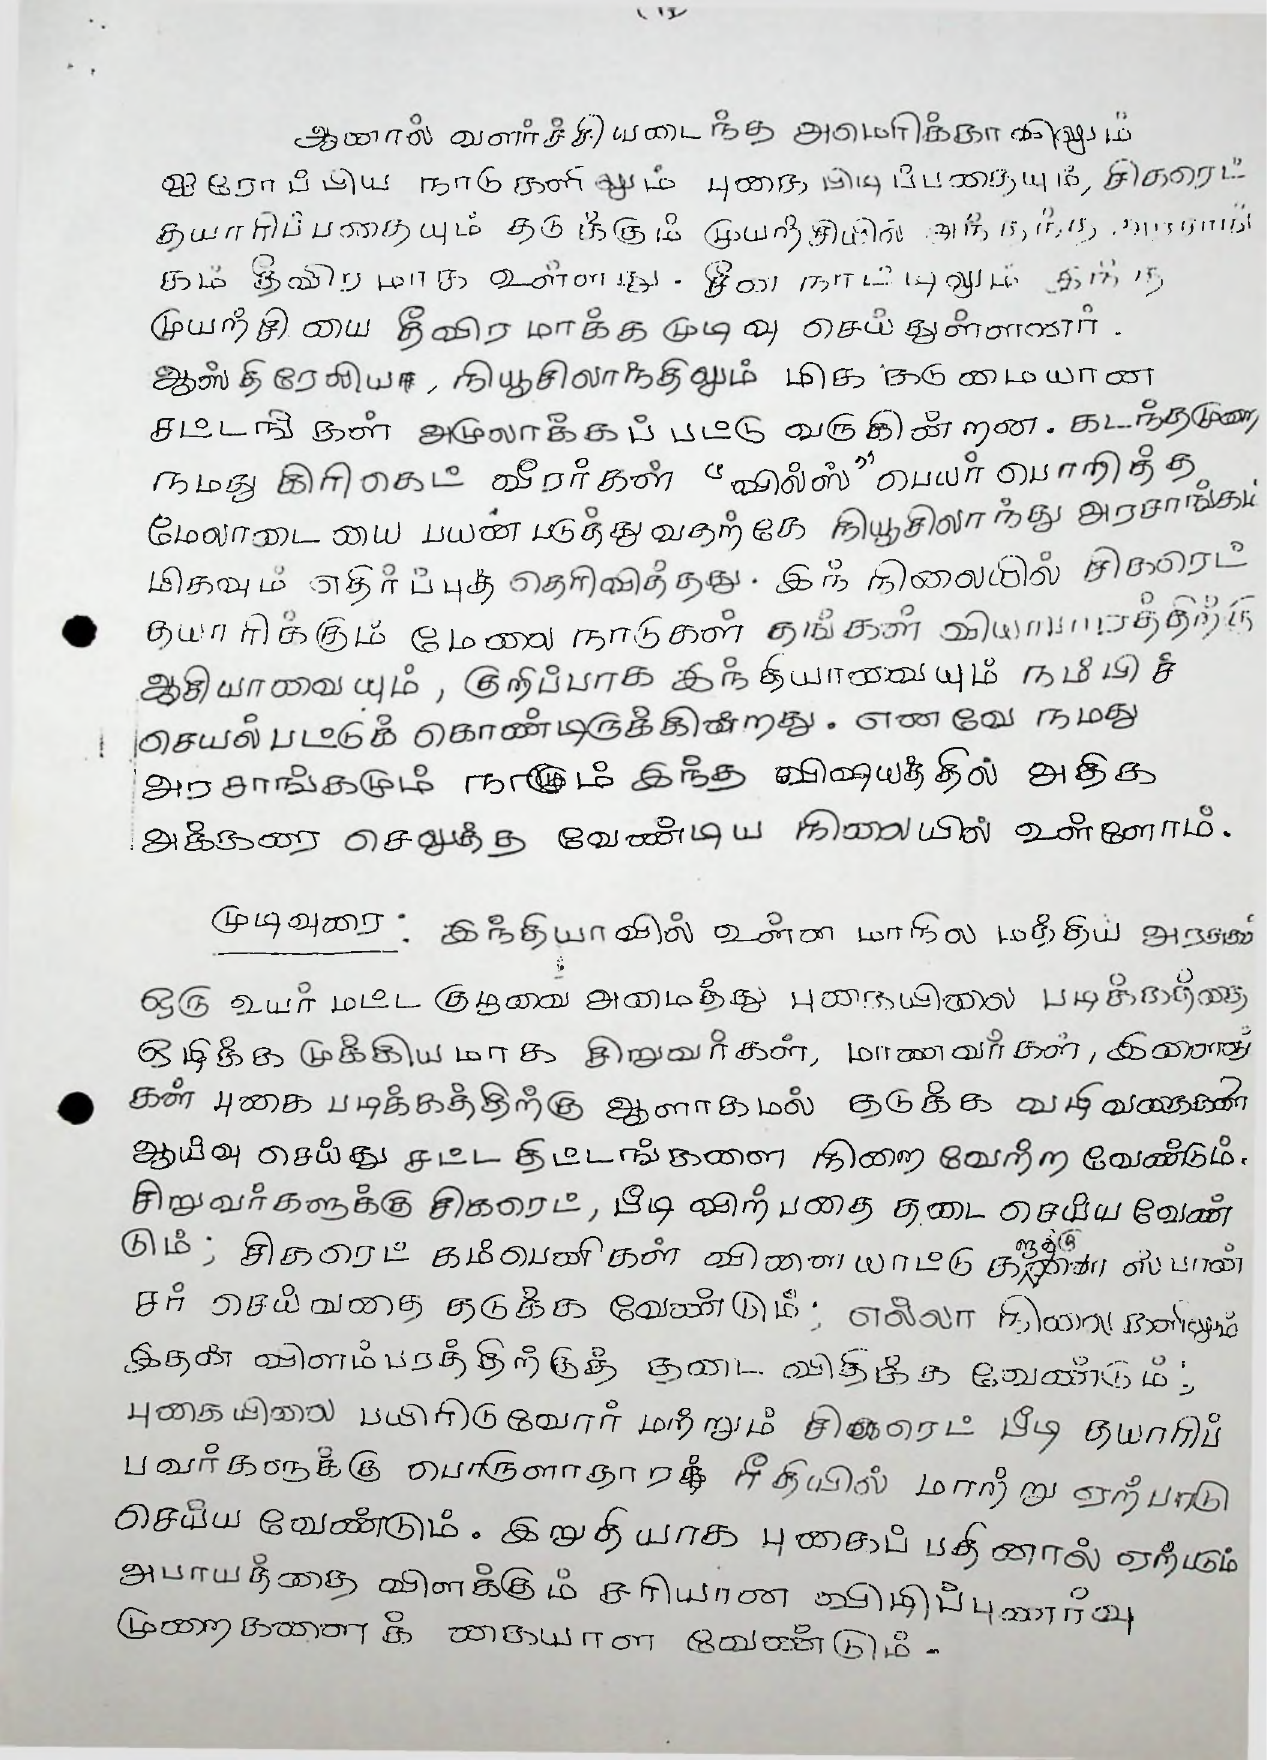 ஆனால் வளர்ச்சியடைந்த அமெரிக்காவிலும்
ஐரோப்பிய நாடுகளிலும் புகை பிடிப்பதையும், சிகரெட்
தயாரிப்பதையும் தடுக்கும் முயற்சியில் அந்தந்த அரசாங்
கம் தீவிரமாக உள்ளது. சீன நாட்டிலும் இந்த
முயற்சியை தீவிரமாக்க முடிவு செய்துள்ளனர்.
ஆஸ்திரேலியா, நியூசிலாந்திலும் மிக கடுமையான
சட்டங்கள் அமுலாக்கப்பட்டு வருகின்றன. கடந்தமுறை
நமது கிரிகெட் வீரர்கள் "வில்ஸ்" பெயர் பொறித்த
மேலாடையை பயன்படுத்துவதற்கே நியூசிலாந்து அரசாங்கம்
மிகவும் எதிர்ப்புத் தெரிவித்தது. இந் நிலையில் சிகரெட்
தயாரிக்கும் மேலை நாடுகள் தங்கள் வியாபாரத்திற்கு
ஆசியாவையும், குறிப்பாக இந்தியாவையும் நம்பிச்
செயல்பட்டுக் கொண்டிருக்கின்றது. எனவே நமது
அரசாங்கமும் நாமும் இந்த விஷயத்தில் அதிக
அக்கரை செலுத்த வேண்டிய நிலையில் உள்ளோம்.
முடிவுரை: இந்தியாவில் உள்ள மாநில மத்திய அரசுகள்
ஒரு உயர்மட்ட குழுவை அமைத்து புகையிலை படிக்கத்தை
ஒழிக்க முக்கியமாக சிறுவர்கள், மாணவர்கள், இளைஞர்
கள் புகை படிக்கத்திற்கு ஆளாகமல் தடுக்க வழிவகைகள்
ஆய்வு செய்து சட்ட திட்டங்களை நிறைவேற்ற வேண்டும்.
சிறுவர்களுக்கு சிகரெட், பீடி விற்பதை தடை செய்ய வேண்
டும்; சிகரெட் கம்பெனிகள் விளையாட்டு களுக்கு ஸ்பான்
சர் செய்வதை தடுக்க வேண்டும்; எல்லா நிலைகளிலும்
இதன் விளம்பரத்திற்குத் தடை விதிக்க வேண்டும்;
புகையிலை பயிரிடுவோர் மற்றும் சிகரெட் பீடி தயாரிப்
பவர்களுக்கு பொருளாதாரத் ரீதியில் மாற்று ஏற்பாடு
செய்ய வேண்டும். இறுதியாக புகைப் பதினால் ஏற்படும்
அபாயத்தை விளக்கும் சரியான விழிப்புணர்வு
முறைகளைக் கையாள வேண்டும்.